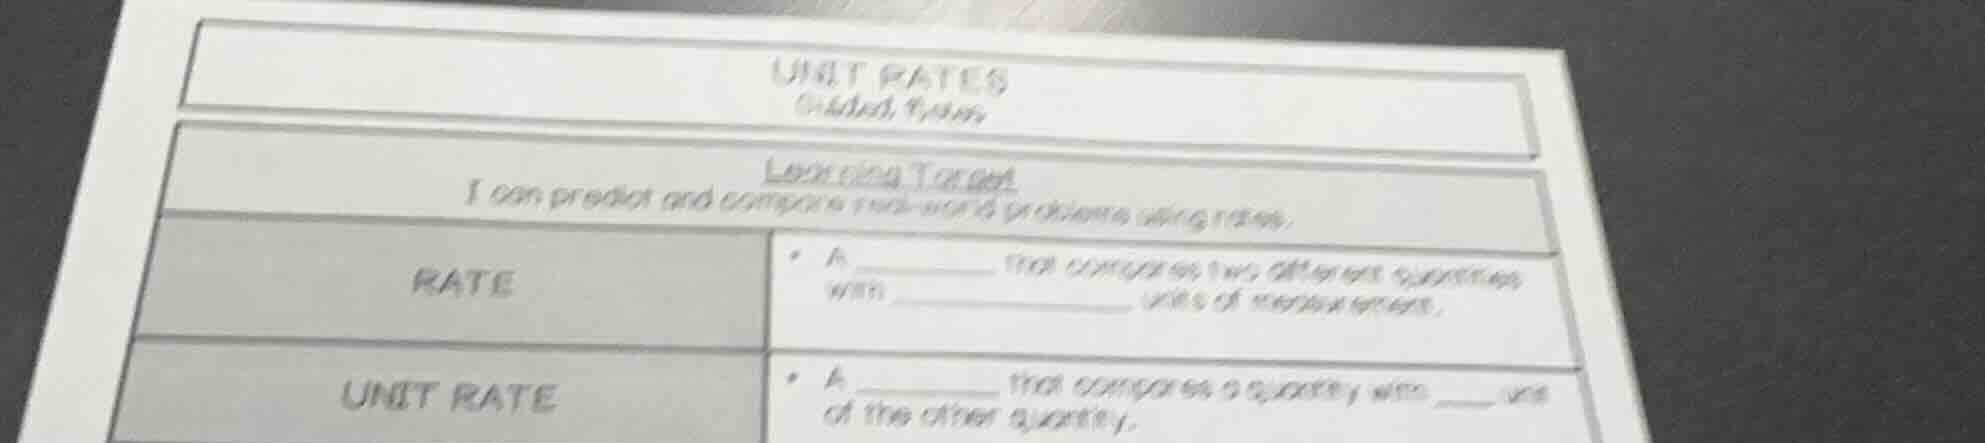 UNIT RATES
Guided Notes
Learning Target
I can predict and compare real-world problems using rates.
RATE
• A ________ that compares two different quantities
with ______________ units of measurement.
UNIT RATE
• A ________ that compares a quantity with ____ unit
of the other quantity.